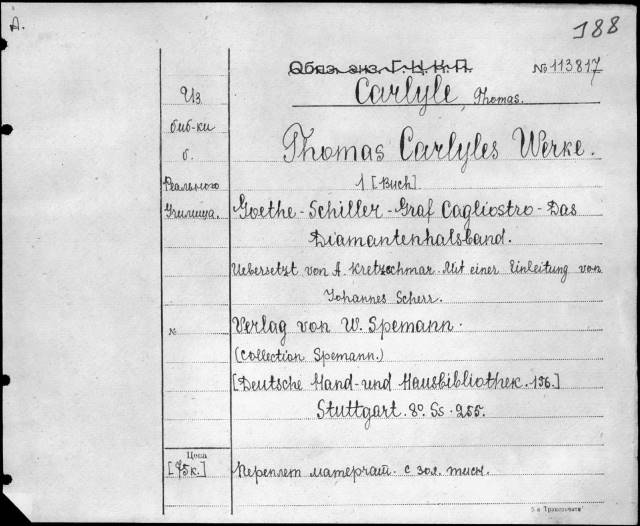 A.
188
Обяз. экз. Г. Ц. К. П.
№ 113817
Carlyle, Thomas.
Из
биб-ки
б.
Реального
Училища.
Thomas Carlyles Werke.
1 [Buch]
Goethe-Schiller-Graf Cagliostro-Das
Diamantenhalsband.
Uebersetzt von A. Kretzschmar. Mit einer Einleitung von
Johannes Scherr.
№
Verlag von W. Spemann.
(Collection Spemann.)
[Deutsche Hand-und Hausbibliothek. 156.]
Stuttgart. 8º. Ss. 255.
Цена
[75к.]
Переплет матерчат. с зол. тисн.